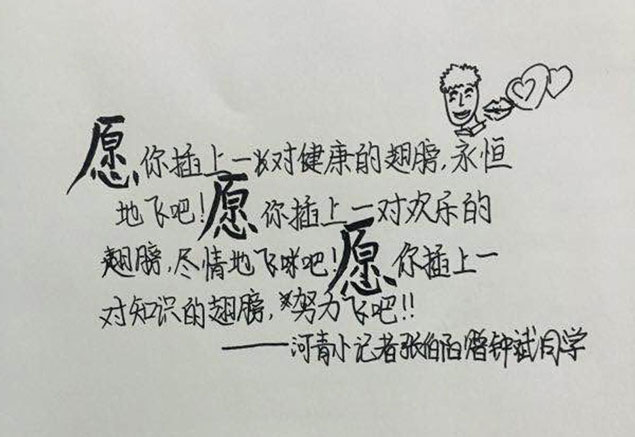 愿你插上一对健康的翅膀,永恒
地飞吧!愿你插上一对欢乐的
翅膀,尽情地飞吧!愿你插上一
对知识的翅膀,努力飞吧!!
——河青小记者张伯阳 钟斌同学